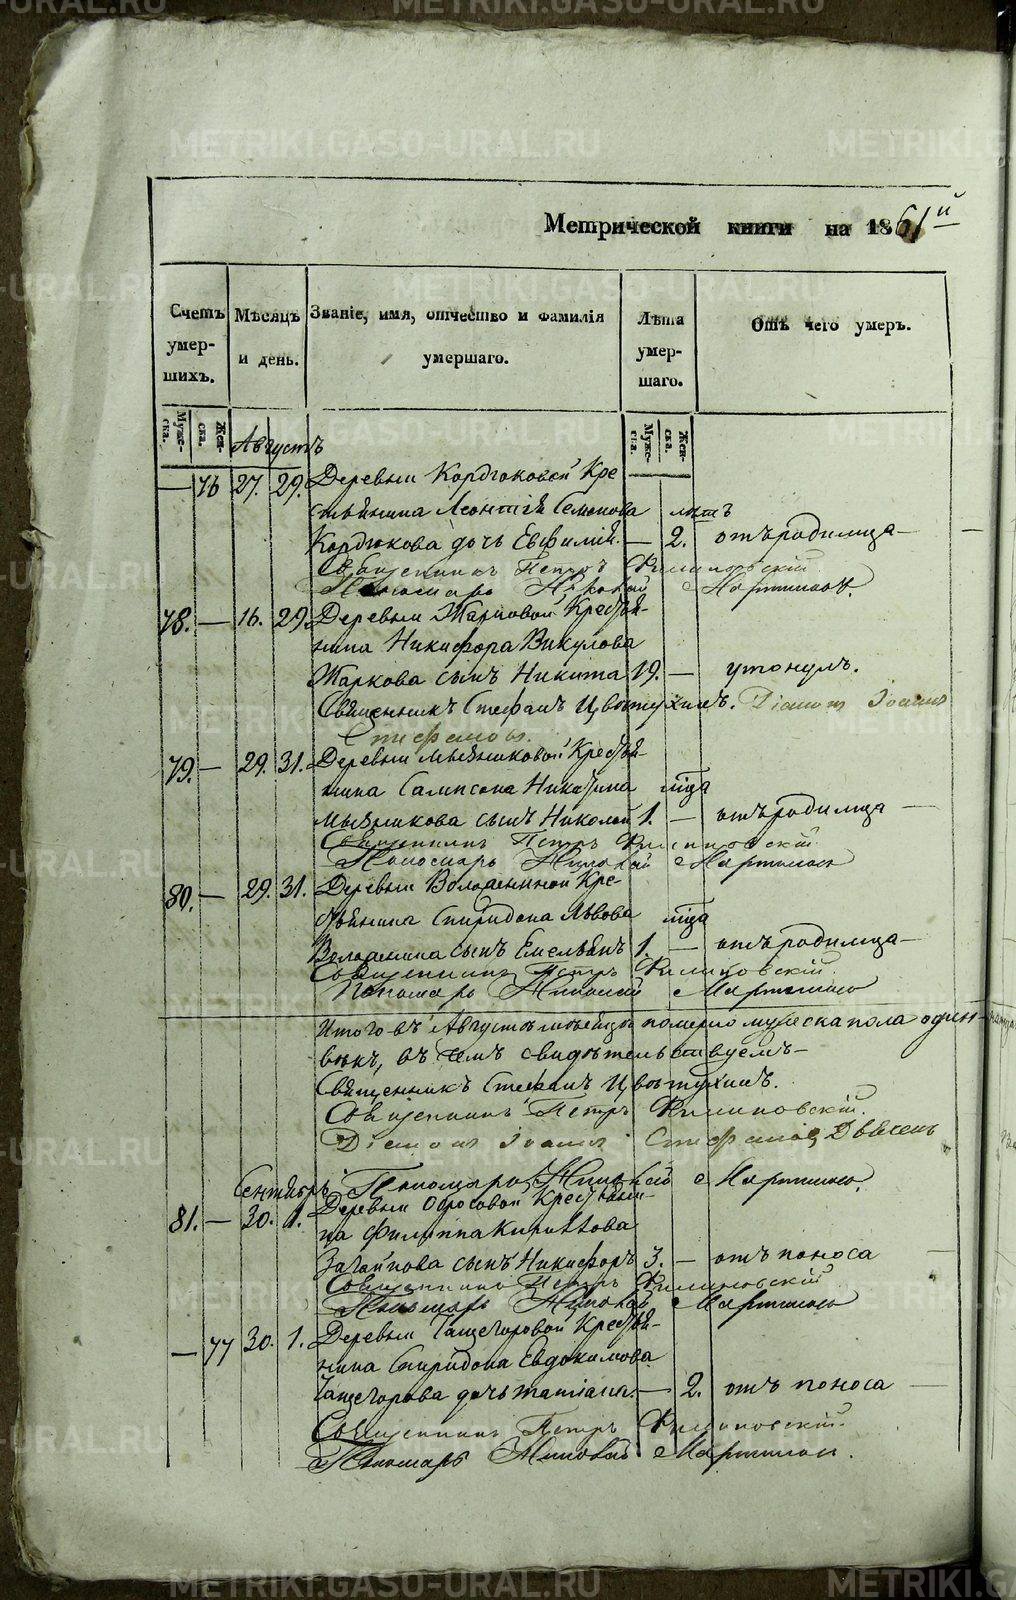 METRIKI.GASO-URAL.RU
Метрической книги на 1861й
Счетъ умер-шихъ.
Мѣсяцъ и день.
Званіе, имя, отчество и фамилія умершаго.
Лѣта умер-шаго.
Отъ чего умеръ.
Муже-ска.
Жен-ска.
Муже-ска.
Жен-ска.
Августъ
— 76 27. 29. Деревни Кордюковой Кре
стьянина Леонтія Семенова лѣтъ
Кордюкова дочь Евфимія. — 2. отъ родимца —
Священникъ Петръ Филиповскій
Пономарь Николай Мартинов
78. — 16. 29. Деревни Жарковой Крестья-
нина Никифора Викулова
Жаркова сынъ Никита 19. — утонулъ.
Священникъ Стефанъ Цвѣтухинъ. Діаконъ Іоаннъ
Стефановъ.
79. — 29. 31. Деревни Мызниковой Крестья-
нина Сампсона Никитина года
Мызникова сынъ Николай 1. — отъ родимца —
Священникъ Петръ Филиповскій
Пономарь Николай Мартинов
80. — 29. 31. Деревни Волокениной Кре-
стьянина Спиридона Львова года
сынъ Емельянъ 1. — отъ родимца —
Священникъ Петръ Филиповскій
Пономарь Николай Мартинов
Итого въ Августѣ мѣсяцѣ померло мужеска пола один-
вѣкъ, въ чемъ свидѣтельствуемъ —
Священникъ Стефанъ Цвѣтухинъ.
Священникъ Петръ Филиповскій.
Діаконъ Іоаннъ Стефановъ
Пономарь Николай Мартинов.
Сентябрь
81. — 30. 1. Деревни Крестьяни-
на Филиппа Кириллова
сынъ Никифоръ 3. — отъ поноса
Священникъ Петръ Филиповскій
Пономарь Николай Мартинов
— 77 30. 1. Деревни Тащегоровой Крестья-
нина Спиридона Евдокимова
Тащегорова дочь Татіана. — 2. отъ поноса —
Священникъ Петръ Филиповскій.
Пономарь Николай Мартинов.